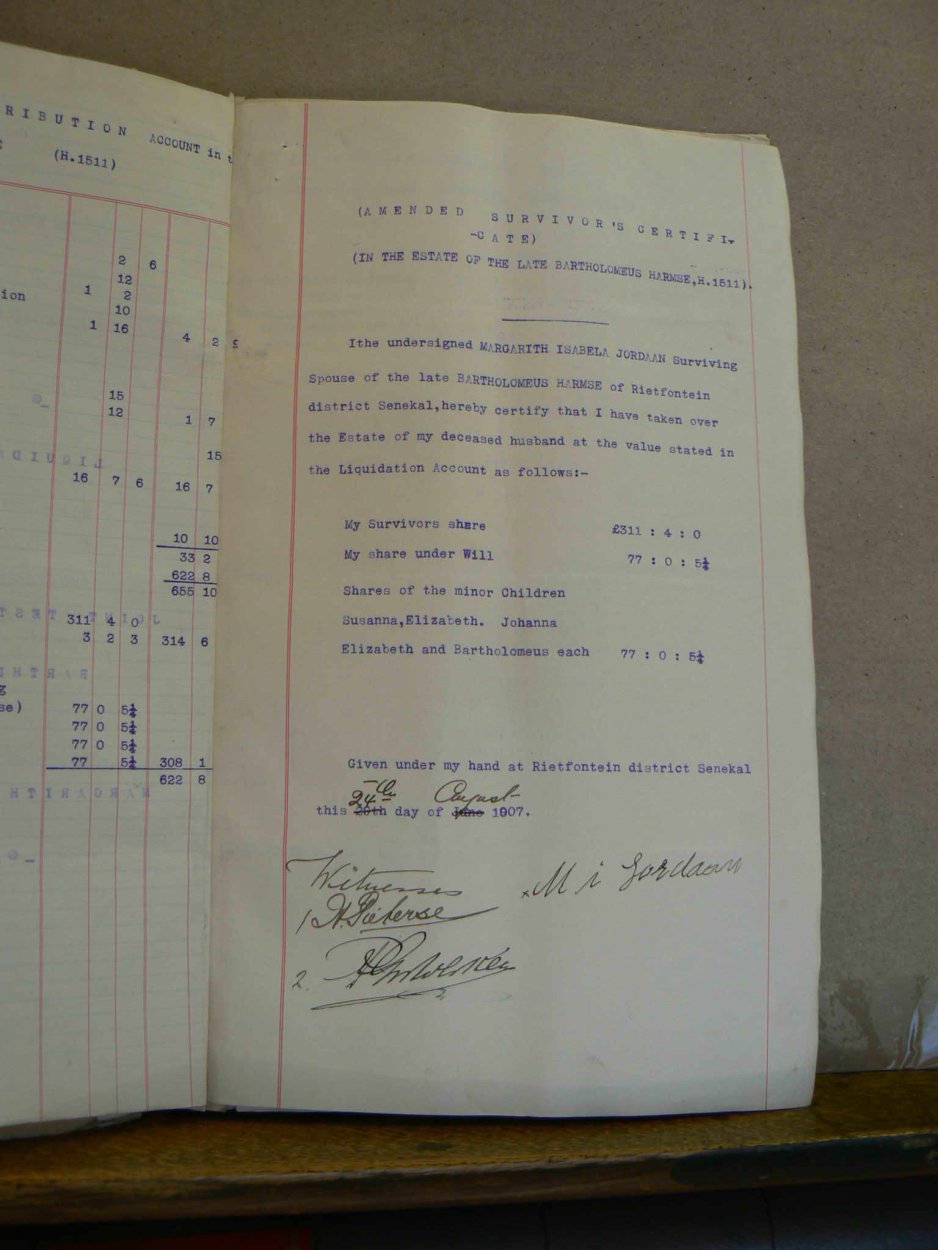 RIBUTION ACCOUNT in t
(H.1511)
2 6
12
ion 1 2
10
1 16 4 2 9
15
12 1 7
15
16 7 6 16 7
10 10
33 2
622 8
655 10
311 4 0
3 2 3 314 6
g
se) 77 0 5¼
77 0 5¼
77 0 5¼
77 5¼ 308 1
622 8
(AMENDED SURVIVOR'S CERTIFI-
-CATE)
(IN THE ESTATE OF THE LATE BARTHOLOMEUS HARMSE,H.1511).
Ithe undersigned MARGARITH ISABELA JORDAAN Surviving
Spouse of the late BARTHOLOMEUS HARMSE of Rietfontein
district Senekal,hereby certify that I have taken over
the Estate of my deceased husband at the value stated in
the Liquidation Account as follows:-
My Survivors share £311 : 4 : 0
My share under Will 77 : 0 : 5¼
Shares of the minor Children
Susanna,Elizabeth. Johanna
Elizabeth and Bartholomeus each 77 : 0 : 5¼
Given under my hand at Rietfontein district Senekal
24th August
this 20th day of June 1907.
Witnesses
M i Jordaan
1 H. Pieterse
2.